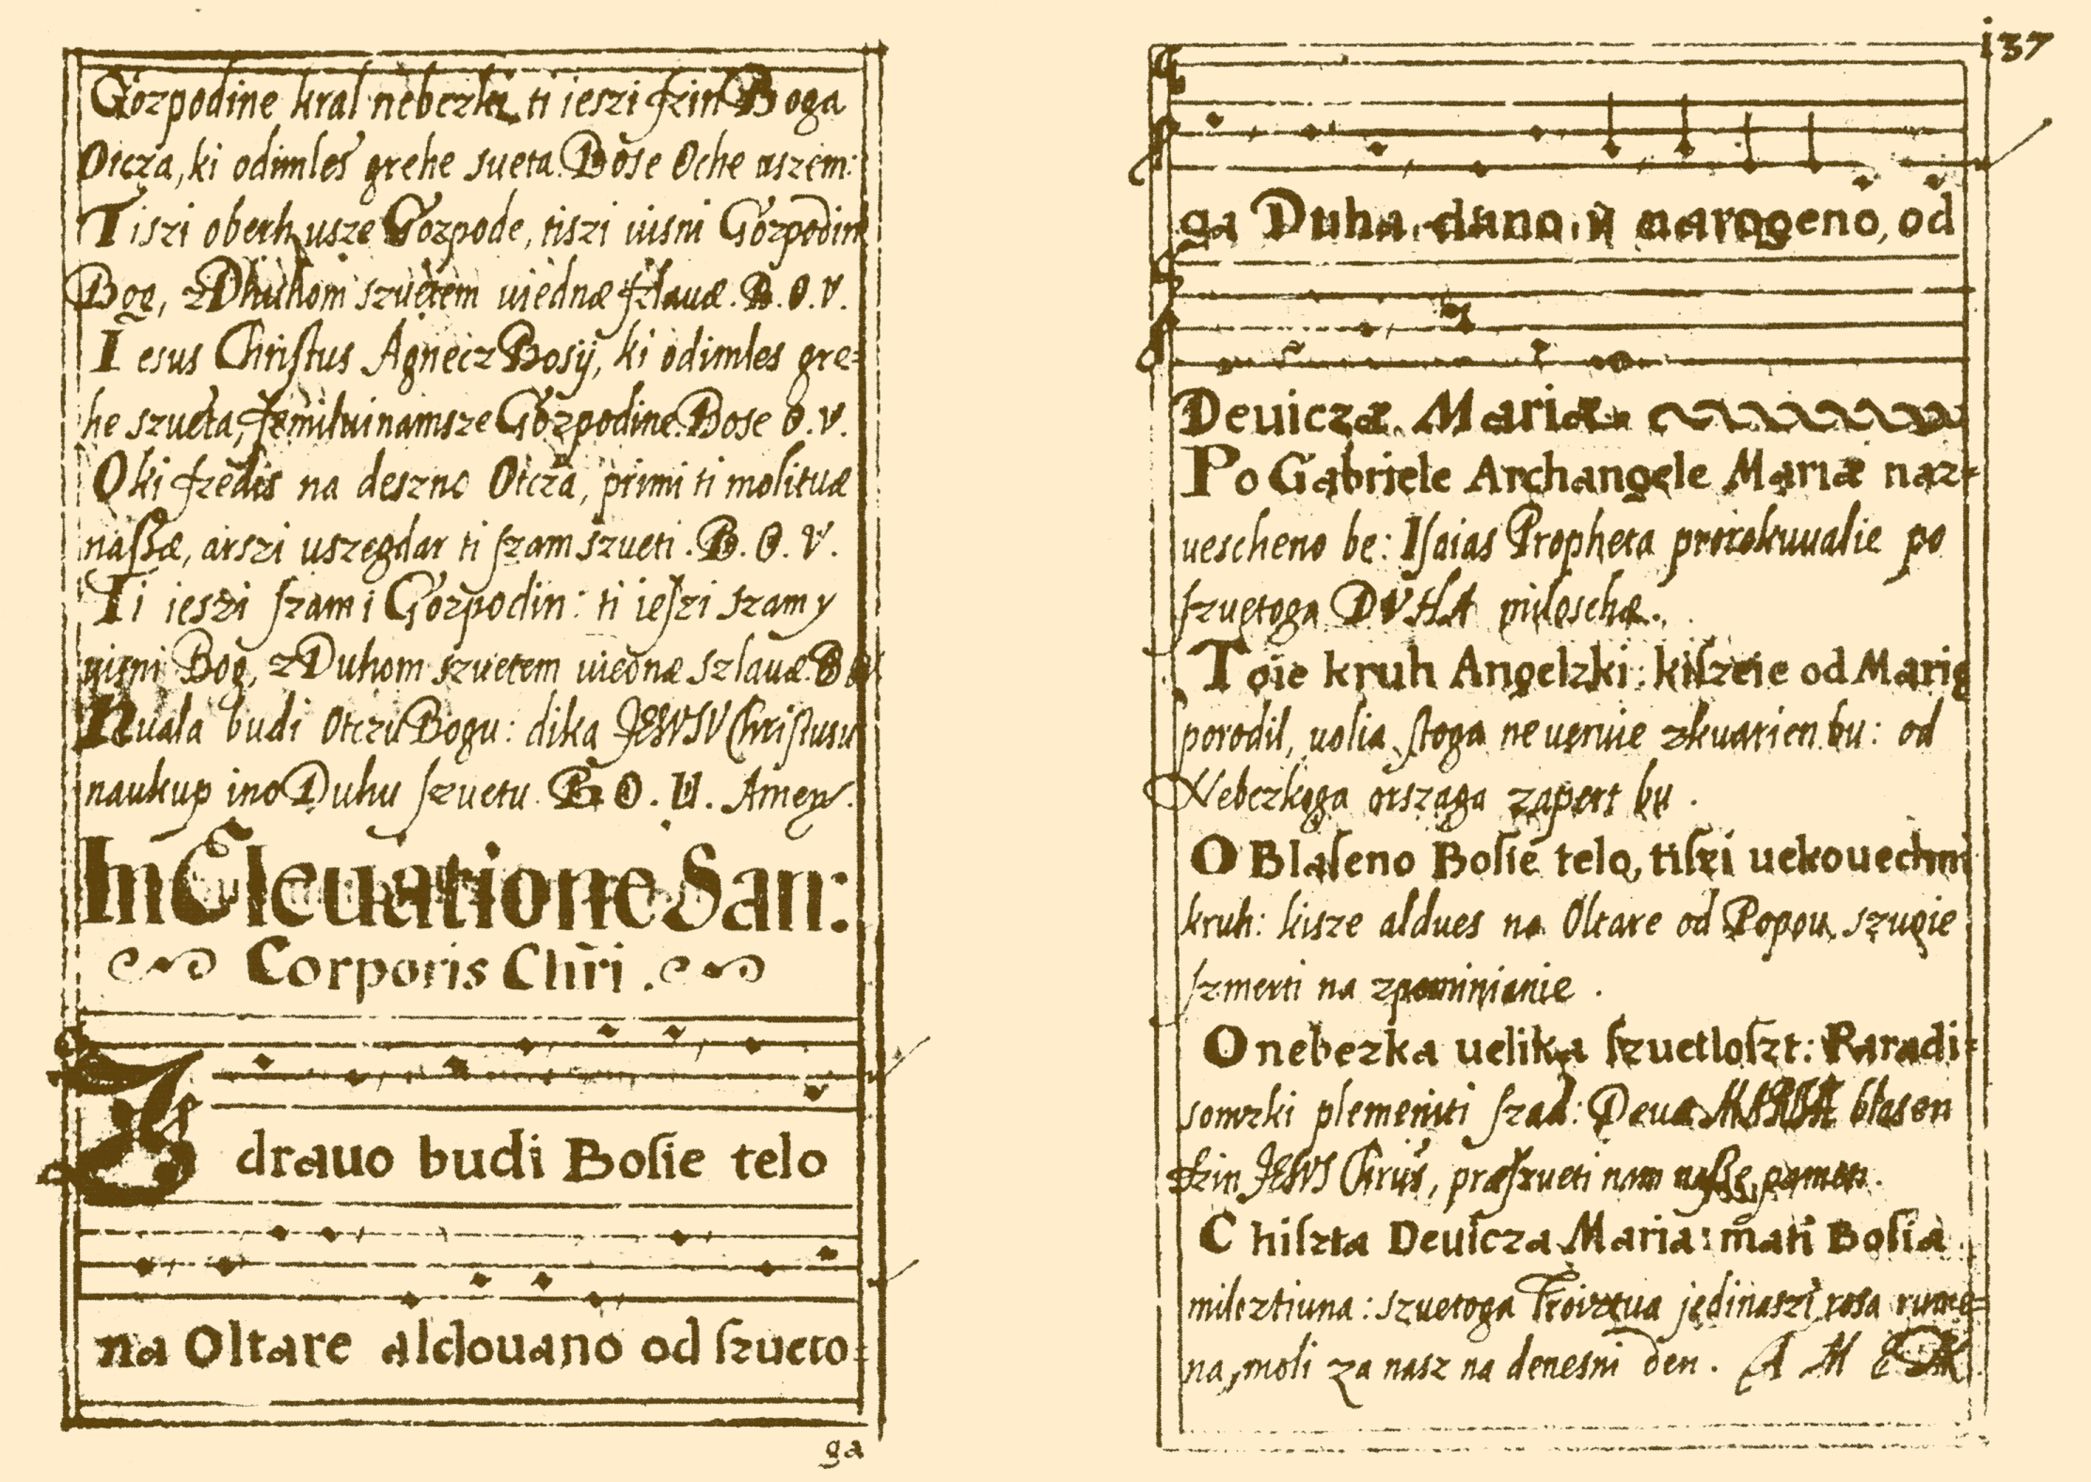 Gozpodine kral nebezki ti ieszi szin Boga
Otcza, ki odimles grehe sueta. Bose Oche uszem:
Tiszi oberh usze Gozpode, tiszi iusni Gozpodin
Bog, z Dhuhom szuetem uiednæ szlauæ. B. O. V.
Iesus Christus Agnecz Bosij, ki odimles gre-
he szueta, szmilui nam sze Gozpodine Bose O. V.
O ki szedis na deszno Otcza, primi ti molituæ
naßæ, ar szi uszegdar ti szam szueti. B. O. V.
Ti ieszi szam i Gozpodin: ti ieszi szam y
uisni Bog, z Duhom szuetem uiednæ szlauæ. B O V
Huala budi Otczu Bogu: dika JESVSU Christusu
naukup ino Duhu szuetu. B. O. U. Amen.
In Eleuatione San:
Corporis Chri.
Zdrauo budi Bosie telo
na Oltare aldouano od szueto:
ga
137
ga Duha, dano, y narogeno, od
Deuiczæ Mariæ
Po Gabriele Archangele Mariæ naz-
uescheno be: Isaias Propheta prorokuualie po
szuetoga DVHA miloschæ.
To ie kruh Angelzki: ki sze ie od Marie
porodil, uolia stoga ne ueruie zkuarien bu: od
Nebezkoga orszaga zapert bu.
O Blaseno Bosie telo, ti szi uekouechni
kruh: ki sze aldues na Oltare od Popou, szugie
szmerti na zpominianie.
O nebezka uelika szuetloszt: Paradi-
somzki plemeniti szad: Deuæ MARIÆ blasen
szin JESVS Chrus, præszueti nam naße pamet.
Chiszta Deuicza Maria: mati Bosia
miloztiuna: szuetoga Troiztua jedina szi rosa rume-
na, moli za nasz na denesni den. A M E N.